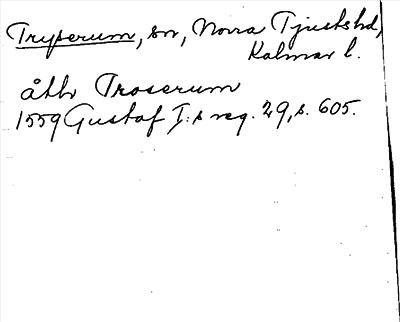 Tryserum, sn, Norra Tjusts hd,
Kalmar l.
åtlv Troserum
1559 Gustaf I:s reg. 29, s. 605.